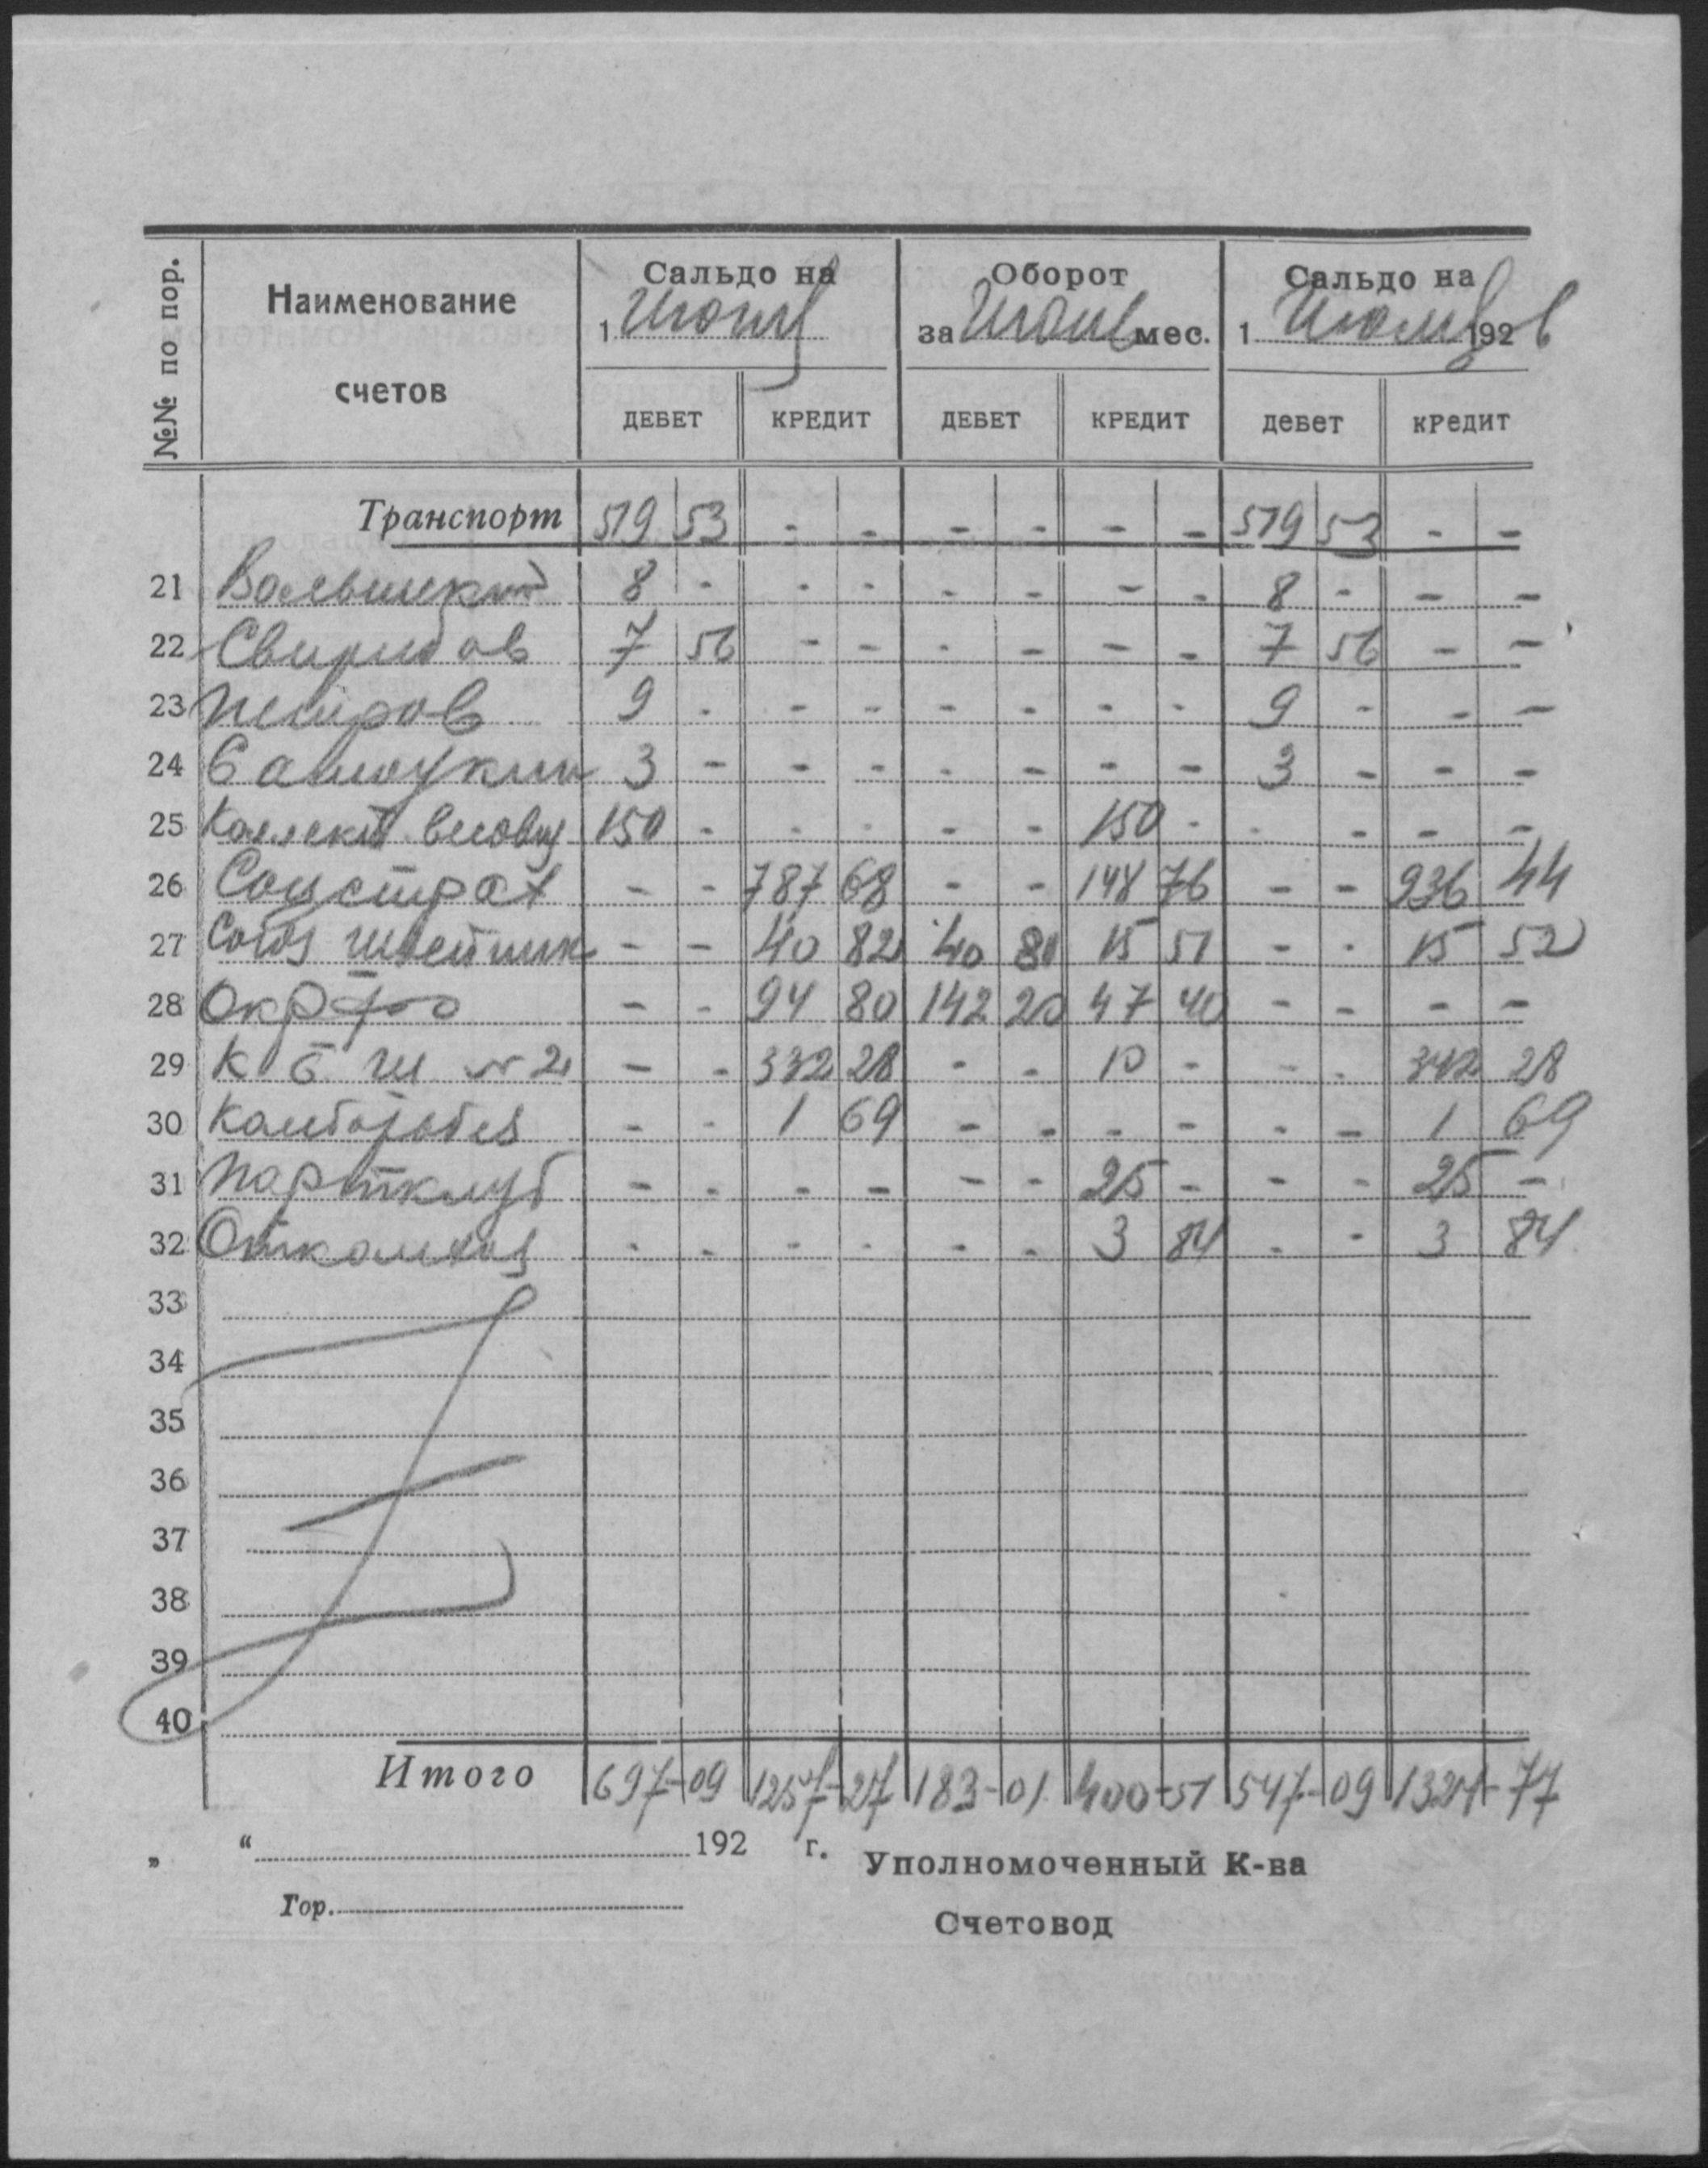 №№ по пор.
Наименование счетов
Сальдо на 1 Июня
Оборот за Июнь мес.
Сальдо на 1 Июля 1926
ДЕБЕТ КРЕДИТ ДЕБЕТ КРЕДИТ ДЕБЕТ КРЕДИТ
Транспорт 519 53 - - - - - - 519 53 - -
21 8 - - - - - - - 8 - - -
22 Свиридов 7 56 - - - - - - 7 56 - -
23 9 - - - - - - - 9 - - -
24 Самоукин 3 - - - - - - - 3 - - -
25 150 - - - - - 150 - - - - -
26 Соцстрах - - 787 68 - - 148 76 - - 936 44
27 Союз швейник - - 40 82 40 81 15 51 - - 15 52
28 ОкрФо - - 94 80 142 20 47 40 - - - -
29 К б ш № 2 - - 332 28 - - 10 - - - 342 28
30 - - 1 69 - - - - - - 1 69
31 Партклуб - - - - - - 25 - - - 25 -
32 Откомхоз - - - - - - 3 84 - - 3 84
33
34
35
36
37
38
39
40
Итого 697-09 1257-27 183-01 400-51 547-09 1324-77
„ “ 192 г. Уполномоченный К-ва
Гор.
Счетовод